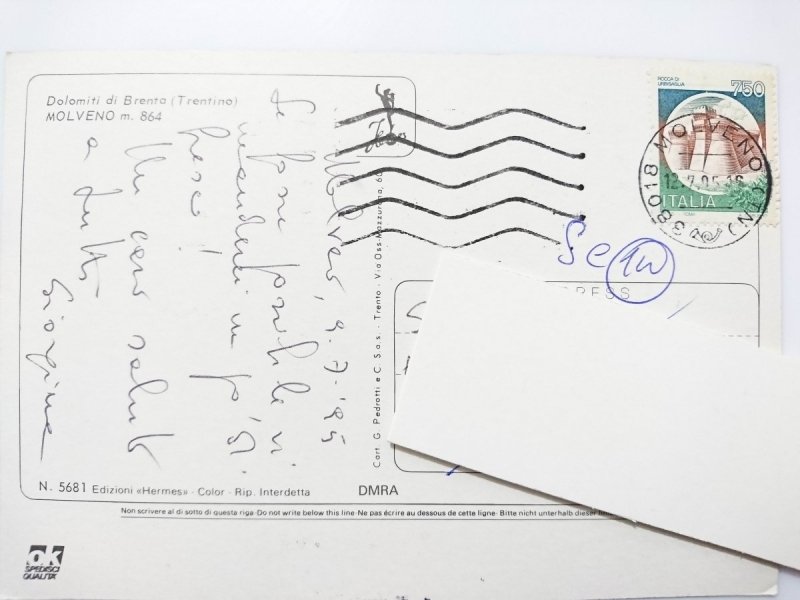 Dolomiti di Brenta (Trentino)
MOLVENO m. 864
Molveno, 9-7-'95
Se fosse possibile vi
manderei un po' di
fresco!
Un caro saluto
a tutti
Giorgina
Cart. G. Pedrotti e C. S.a.s. - Trento - Via Oss-Mazzurana, 60
N. 5681 Edizioni «Hermes» - Color - Rip. Interdetta
DMRA
Non scrivere al di sotto di questa riga-Do not write below this line-Ne pas écrire au dessous de cette ligne-Bitte nicht unterhalb dieser
ok
SPEDISCI
QUALITA'
ROCCA DI
URBISAGLIA
750
ITALIA
38018 MOLVENO (TN)
12.7.95.16